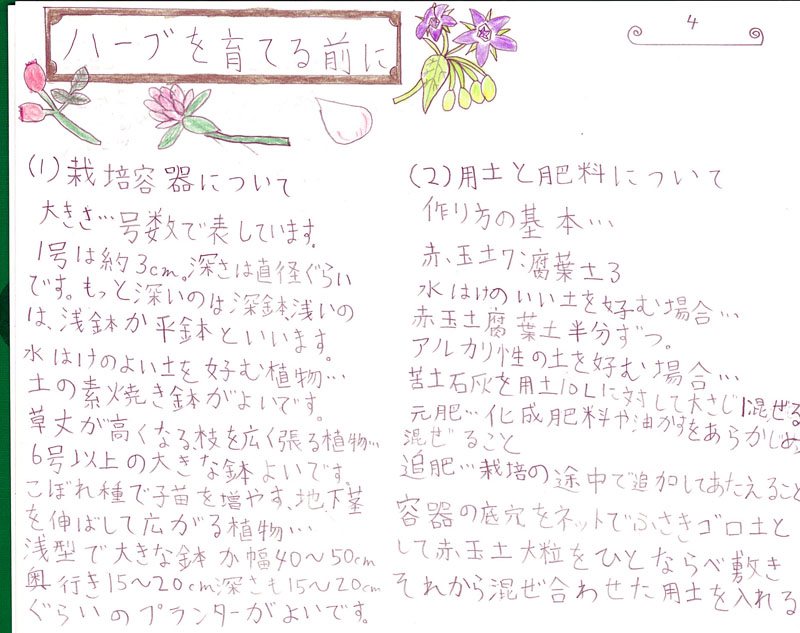 ハーブを育てる前に
4
(1)栽培容器について
大きさ…号数で表しています。
1号は約3cm。深さは直径ぐらい
です。もっと深いのは深鉢、浅いの
は、浅鉢か平鉢といいます。
水はけのよい土を好む植物…
土の素焼き鉢がよいです。
草丈が高くなる、枝を広く張る植物…
6号以上の大きな鉢よいです。
こぼれ種で子苗を増やす、地下茎
を伸ばして広がる植物…
浅型で大きな鉢か幅40〜50cm
奥行き15〜20cm深さも15〜20cm
ぐらいのプランターがよいです。
(2)用土と肥料について
作り方の基本…
赤玉土7:腐葉土3
水はけのいい土を好む場合…
赤玉土腐葉土半分ずつ。
アルカリ性の土を好む場合…
苦土石灰を用土10Lに対して大さじ1混ぜる
元肥…化成肥料や油かすをあらかじめ
混ぜること
追肥…栽培の途中で追加してあたえること
容器の底穴をネットでふさきゴロ土と
して赤玉土大粒をひとならべ敷き
それから混ぜ合わせた用土を入れる